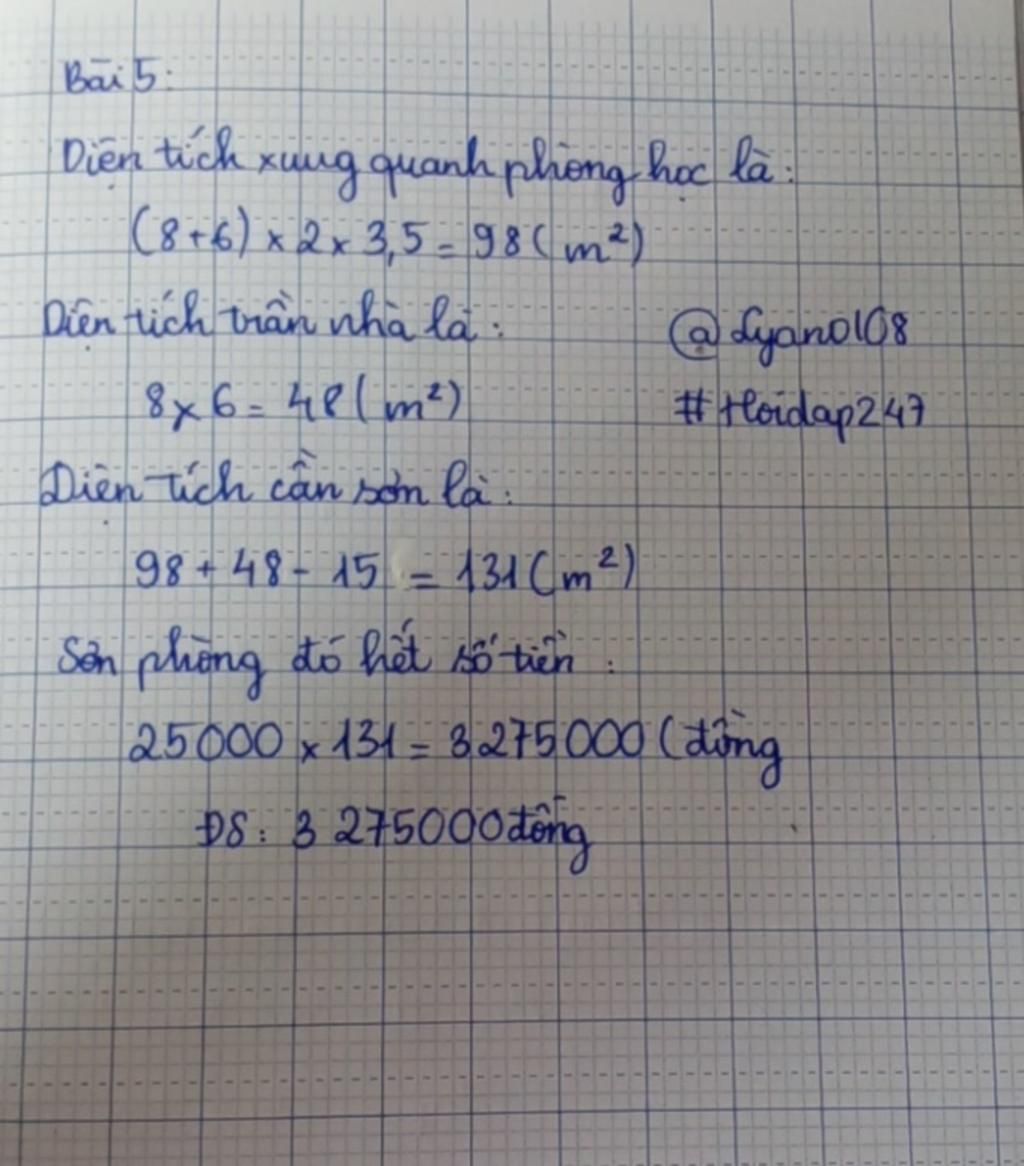 Bài 5:
Diện tích xung quanh phòng học là:
(8+6) × 2 × 3,5 = 98 ( m²)
Diện tích trần nhà là:
@Lyan0108
8 × 6 = 48 ( m²)
#Hoidap247
Diện tích cần sơn là:
98 + 48 - 15 = 131 ( m²)
Sơn phòng đó hết số tiền :
25000 × 131 = 3275000 (đồng
ĐS: 3 275000 đồng